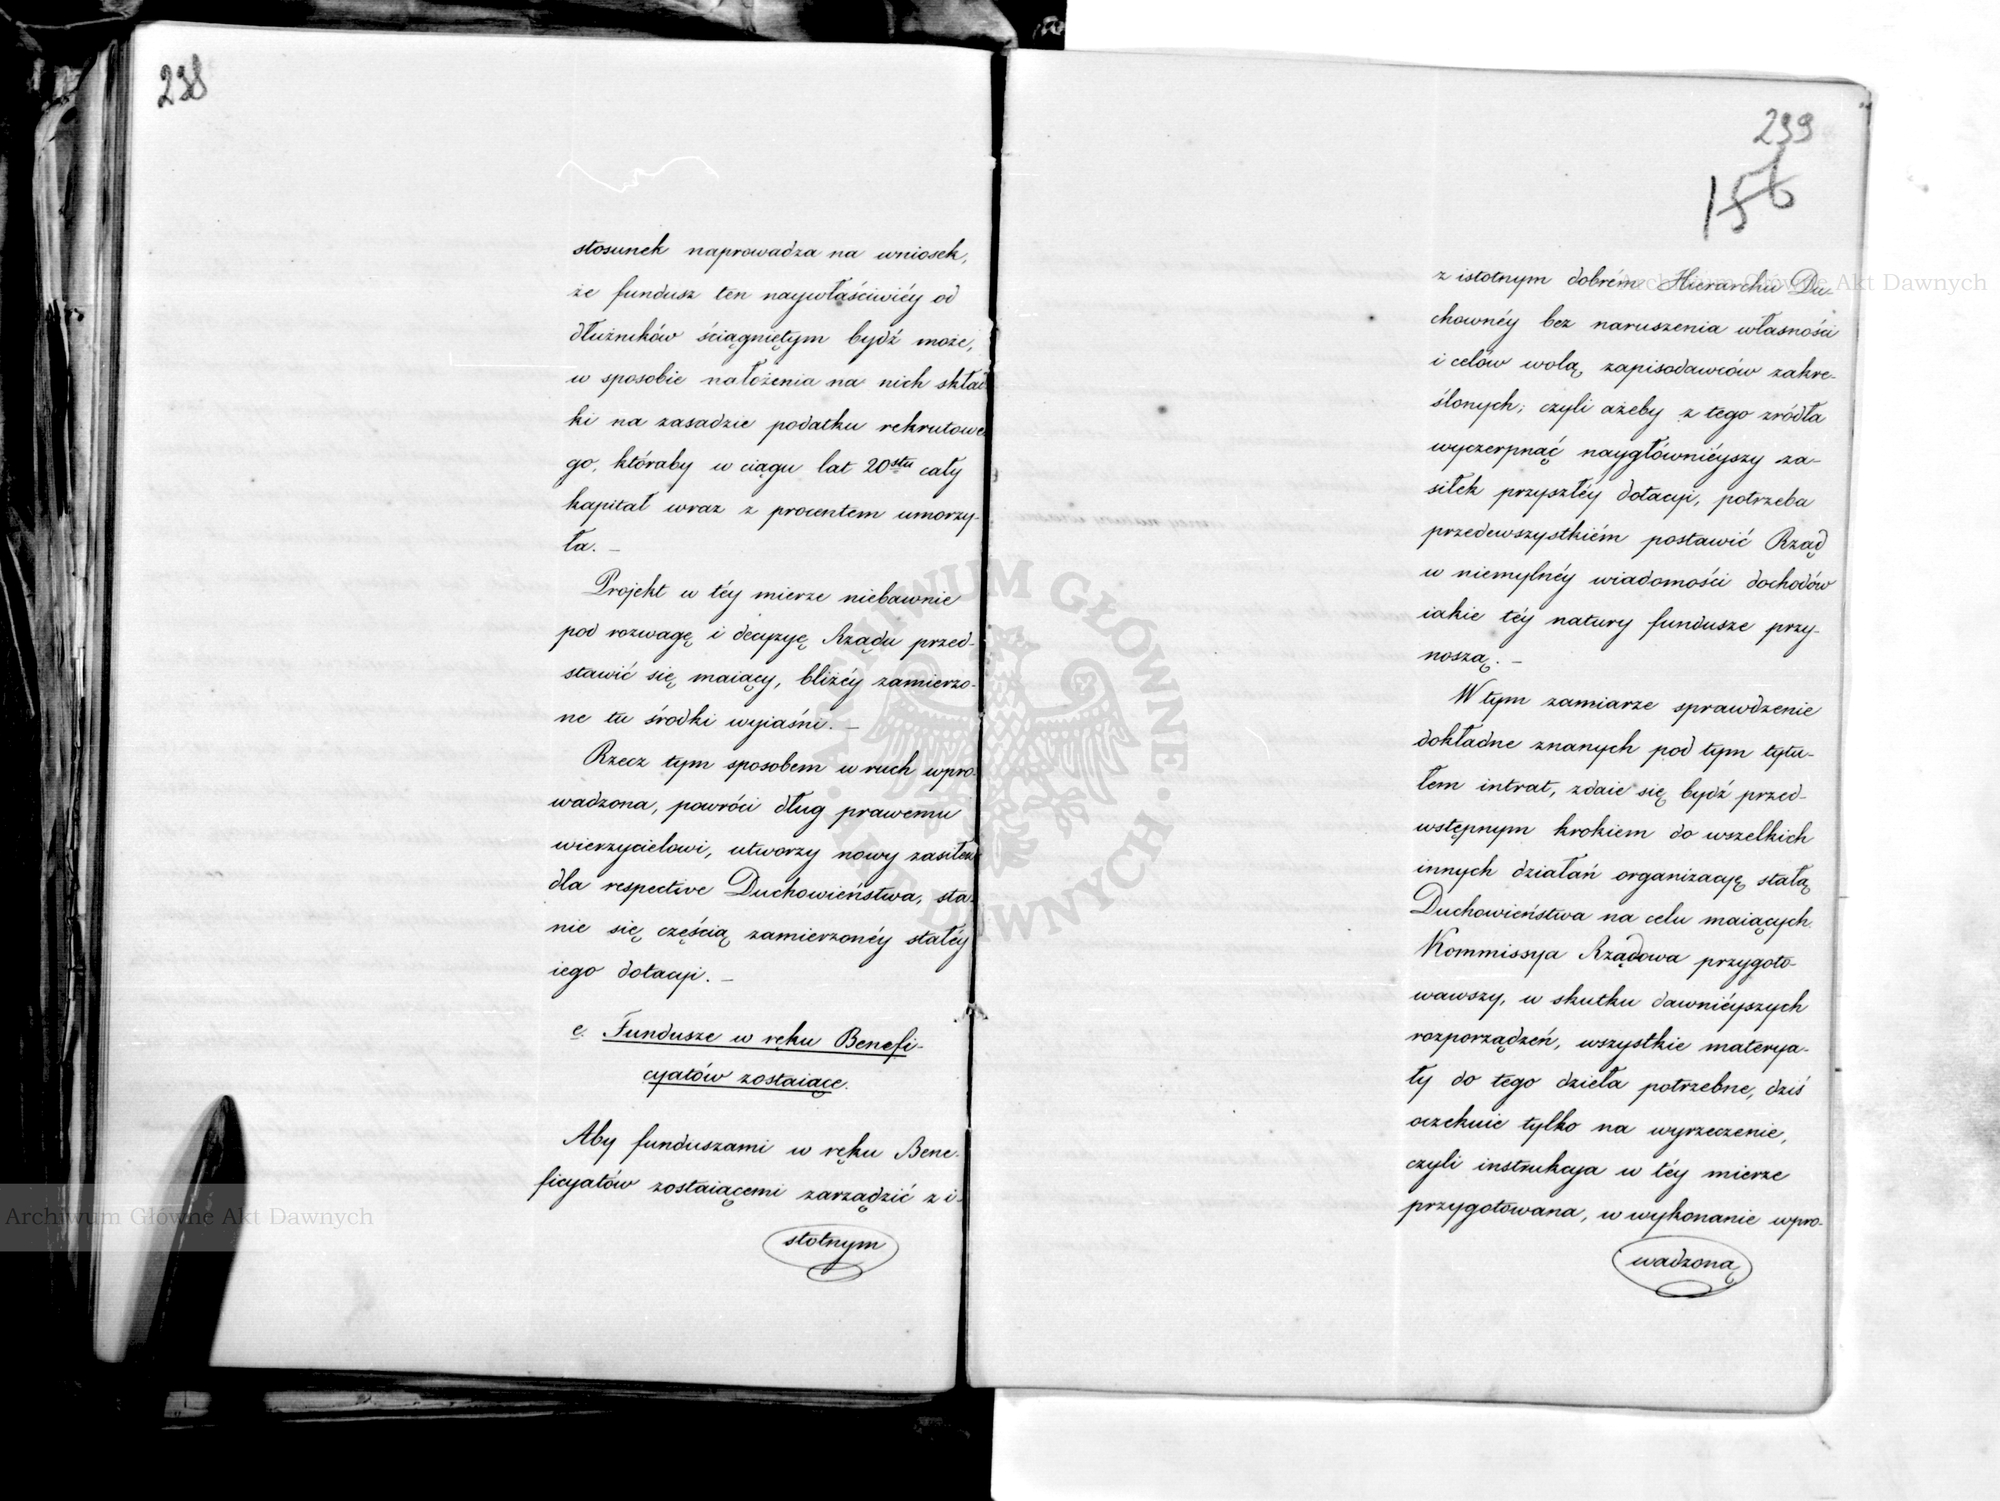 298
stosunek naprowadza na wniosek,
że fundusz ten naywłaściwiéy od
dłużników ściągniętym bydź może,
w sposobie nałożenia na nich skład
ki na zasadzie podatku rekrutowe
go, któraby w ciągu lat 20stu cały
kapitał wraz z procentem umorzy-
ła. –
Projekt w téy mierze niebawnie
pod rozwagę i decyzyę Rządu przed-
stawić się maiący, bliżéy zamierzo-
ne tu środki wyiaśni. –
Rzecz tym sposobem w ruch wpro-
wadzona, powróci dług prawemu
wierzycielowi, utworzy nowy zasiłek
dla respective Duchowieństwa, sta-
nie się częścią zamierzonéy stałéy
iego dotacyi. –
e. Fundusze w ręku Benefi-
cyatów zostaiące.
Aby funduszami w ręku Bene-
ficyatów zostaiącemi zarządzić z i-
stotnym
299
156
z istotnym dobrém Hierarchii Du-
chownéy bez naruszenia własności
i celów wolą zapisodawców zakre-
ślonych; czyli ażeby z tego zródła
wyczerpnąć naygłównieyszy za-
siłek przyszłéy dotacyi, potrzeba
przedewszystkiém postawić Rząd
w niemylnéy wiadomości dochodów
iakie téy natury fundusze przy-
noszą. –
W tym zamiarze sprawdzenie
dokładne znanych pod tym tytu-
łem intrat, zdaie się bydź przed-
wstępnym krokiem do wszelkich
innych działań organizacyę stałą
Duchowieństwa na celu maiących.
Kommissya Rządowa przygoto-
wawszy, w skutku dawniéyszych
rozporządzeń, wszystkie materya-
ły do tego dzieła potrzebne, dziś
oczekuie tylko na wyrzeczenie,
czyli instrukcya w téy mierze
przygotowana, w wykonanie wpro-
wadzoną
Archiwum Główne Akt Dawnych
Archiwum Główne Akt Dawnych
ARCHIWUM GŁÓWNE · AKT DAWNYCH ·